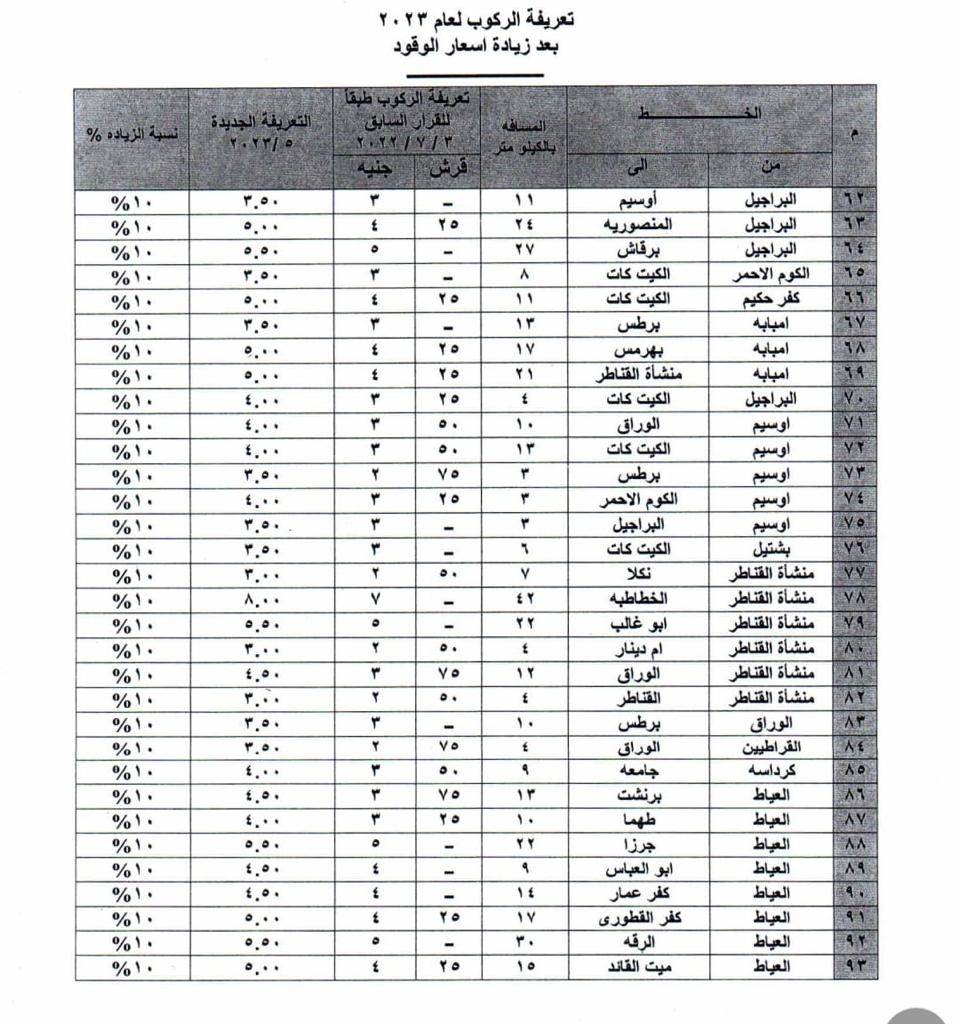 تعريفة الركوب لعام ٢٠٢٣
بعد زيادة اسعار الوقود
م الخـــــط المسافه بالكيلو متر تعريفة الركوب طبقاً للقرار السابق ٢٠٢٢/٧/٣ التعريفة الجديدة ٢٠٢٣/٥ نسبة الزياده %
من الى قرش جنيه
٦٢ البراجيل أوسيم ١١ – ٣ ٣.٥٠ ١٠%
٦٣ البراجيل المنصوريه ٢٤ ٢٥ ٤ ٥.٠٠ ١٠%
٦٤ البراجيل برقاش ٢٧ – ٥ ٥.٥٠ ١٠%
٦٥ الكوم الاحمر الكيت كات ٨ – ٣ ٣.٥٠ ١٠%
٦٦ كفر حكيم الكيت كات ١١ ٢٥ ٤ ٥.٠٠ ١٠%
٦٧ امبابه برطس ١٣ – ٣ ٣.٥٠ ١٠%
٦٨ امبابه بهرمس ١٧ ٢٥ ٤ ٥.٠٠ ١٠%
٦٩ امبابه منشأة القناطر ٢١ ٢٥ ٤ ٥.٠٠ ١٠%
٧٠ البراجيل الكيت كات ٤ ٢٥ ٣ ٤.٠٠ ١٠%
٧١ اوسيم الوراق ١٠ ٥٠ ٣ ٤.٠٠ ١٠%
٧٢ اوسيم الكيت كات ١٣ ٥٠ ٣ ٤.٠٠ ١٠%
٧٣ اوسيم برطس ٣ ٧٥ ٢ ٣.٥٠ ١٠%
٧٤ اوسيم الكوم الاحمر ٣ ٢٥ ٣ ٤.٠٠ ١٠%
٧٥ اوسيم البراجيل ٣ – ٣ ٣.٥٠ ١٠%
٧٦ بشتيل الكيت كات ٦ – ٣ ٣.٥٠ ١٠%
٧٧ منشأة القناطر نكلا ٧ ٥٠ ٢ ٣.٠٠ ١٠%
٧٨ منشأة القناطر الخطاطبه ٤٢ – ٧ ٨.٠٠ ١٠%
٧٩ منشأة القناطر ابو غالب ٢٢ – ٥ ٥.٥٠ ١٠%
٨٠ منشأة القناطر ام دينار ٤ ٥٠ ٢ ٣.٠٠ ١٠%
٨١ منشأة القناطر الوراق ١٢ ٧٥ ٣ ٤.٥٠ ١٠%
٨٢ منشأة القناطر القناطر ٤ ٥٠ ٢ ٣.٠٠ ١٠%
٨٣ الوراق برطس ١٠ – ٣ ٣.٥٠ ١٠%
٨٤ القراطيين الوراق ٤ ٧٥ ٢ ٣.٥٠ ١٠%
٨٥ كرداسه جامعه ٩ ٥٠ ٣ ٤.٠٠ ١٠%
٨٦ العياط برنشت ١٣ ٧٥ ٣ ٤.٥٠ ١٠%
٨٧ العياط طهما ١٠ ٢٥ ٣ ٤.٠٠ ١٠%
٨٨ العياط جرزا ٢٢ – ٥ ٥.٥٠ ١٠%
٨٩ العياط ابو العباس ٩ – ٤ ٤.٥٠ ١٠%
٩٠ العياط كفر عمار ١٤ – ٤ ٤.٥٠ ١٠%
٩١ العياط كفر القطورى ١٧ ٢٥ ٤ ٥.٠٠ ١٠%
٩٢ العياط الرقه ٣٠ – ٥ ٥.٥٠ ١٠%
٩٣ العياط ميت القائد ١٥ ٢٥ ٤ ٥.٠٠ ١٠%